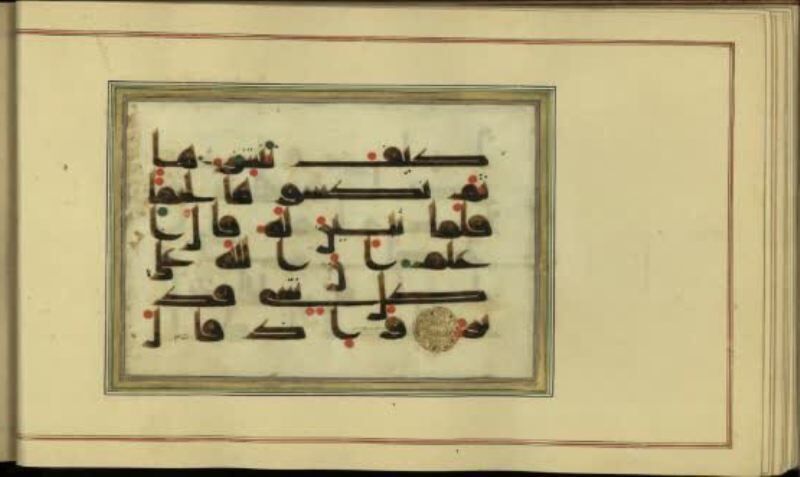 كيف ننشزها
ثم نكسوها لحما
فلما تبين له قال ا
علم ان الله على
كل شى قد
ير واذ قال